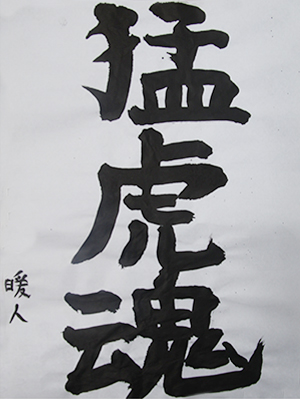 猛虎魂
暖人